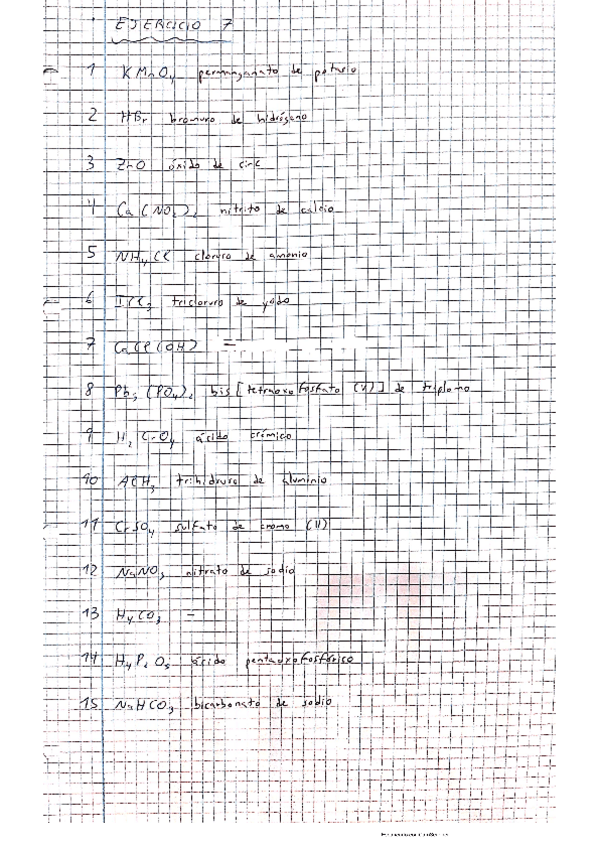 EJERCICIO 7
1 KMnO4 permanganato de potasio
2 HBr bromuro de hidrógeno
3 ZnO óxido de cinc
4 Ca(NO2)2 nitrito de calcio
5 NH4Cl cloruro de amonio
6 ICl3 tricloruro de yodo
7 CaCl(OH) =
8 Pb3(PO4)2 bis[tetraoxofosfato (V)] de triplomo
9 H2CrO4 ácido crómico
10 AlH3 trihidruro de aluminio
11 CrSO4 sulfato de cromo (II)
12 NaNO3 nitrato de sodio
13 H4CO3 =
14 H4P2O5 ácido pentaoxofosfórico
15 NaHCO3 bicarbonato de sodio